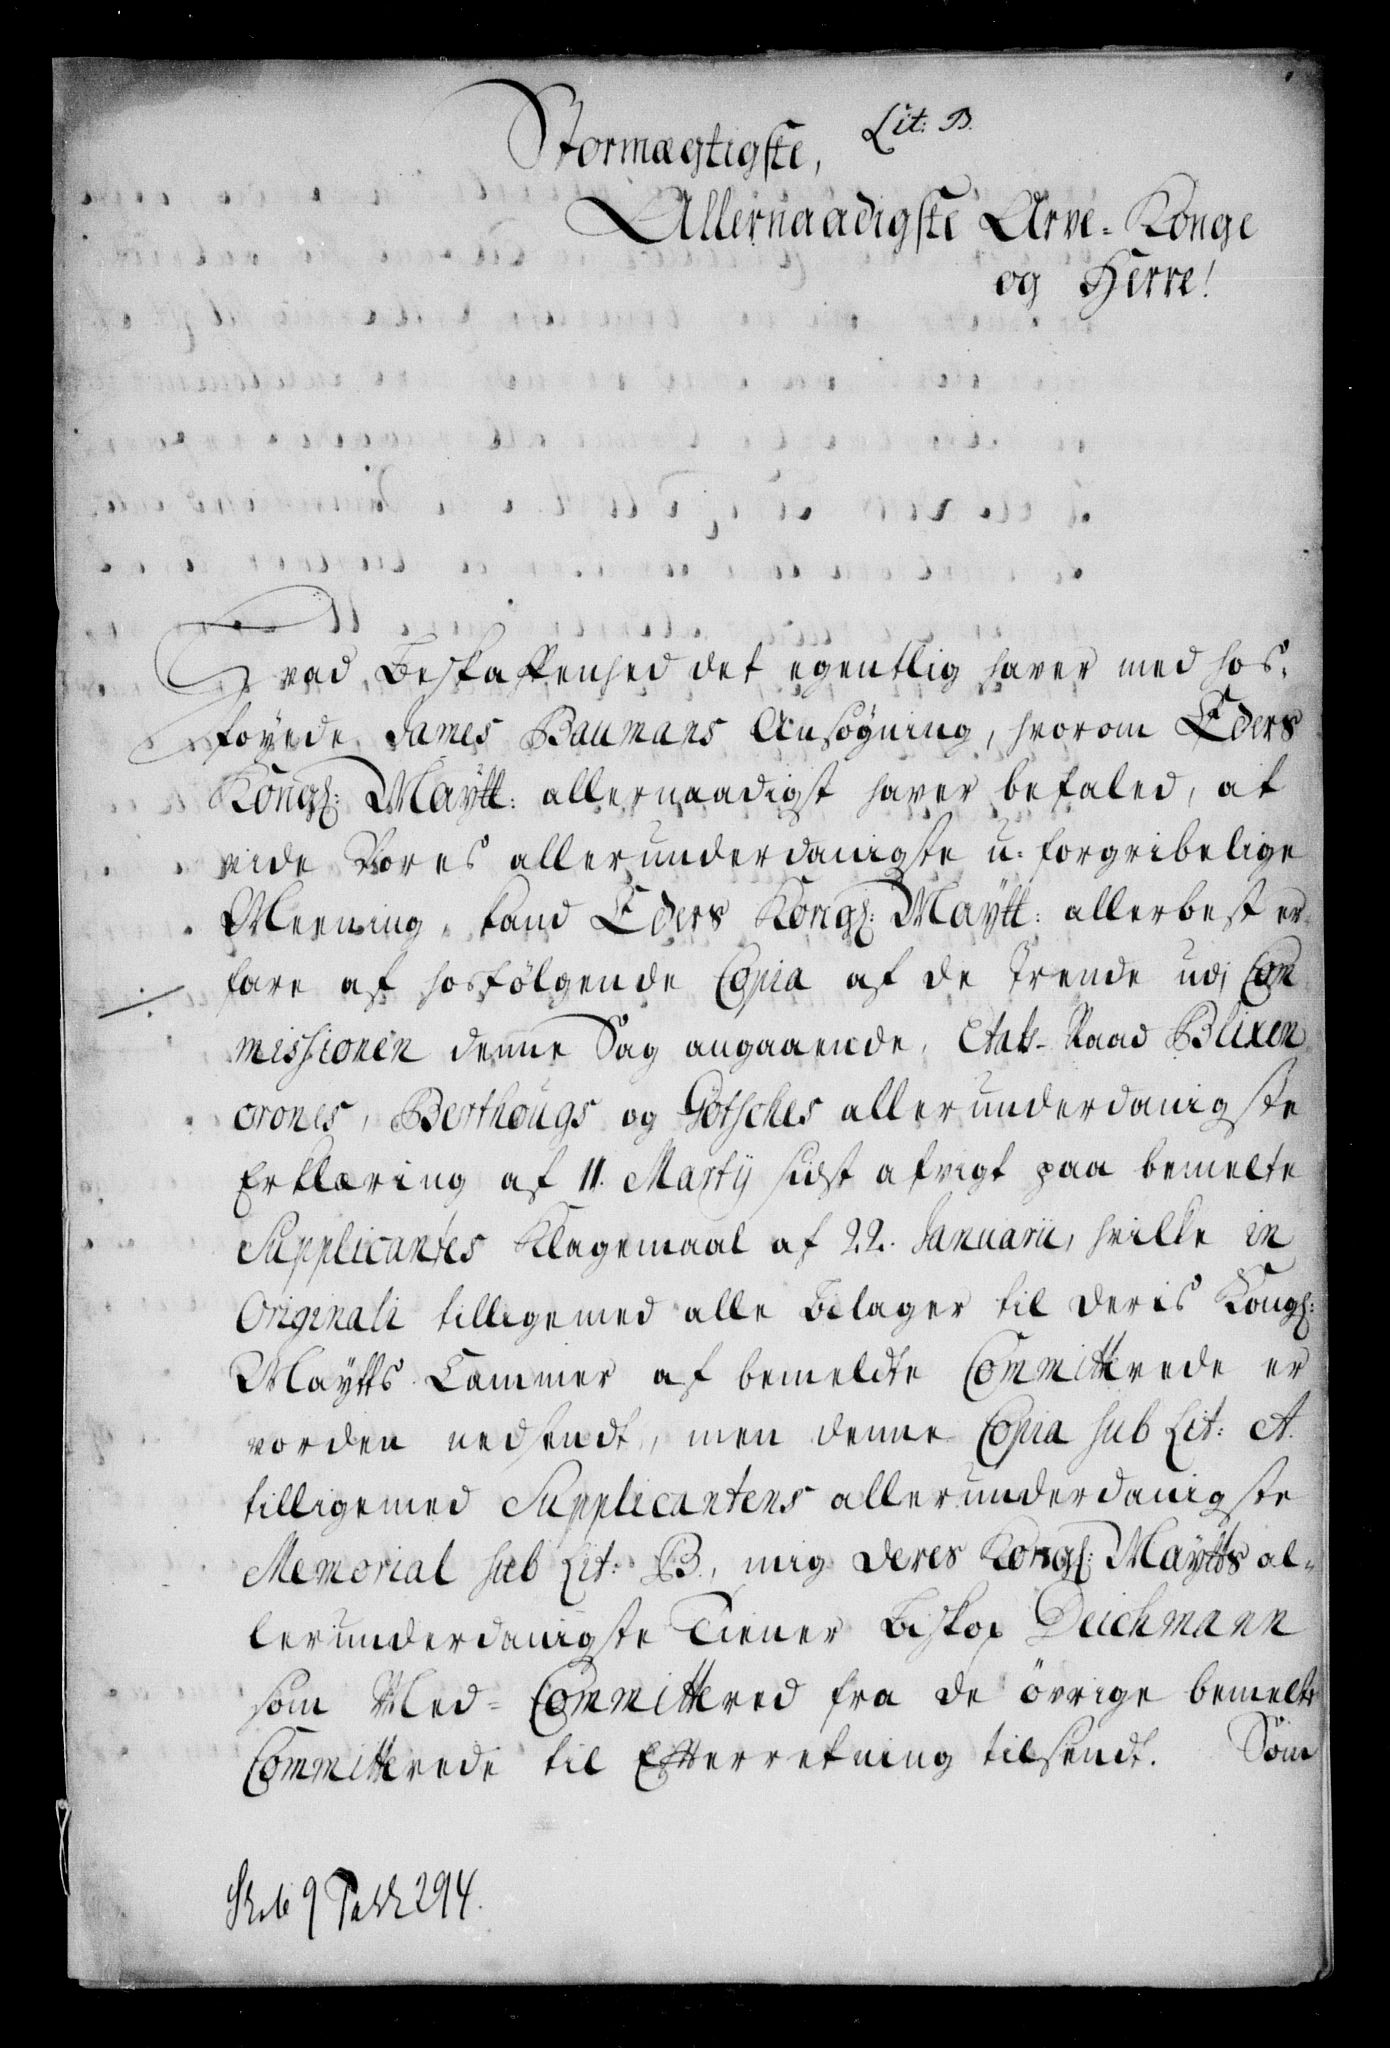 Lit: B.
Stormægtigste,
Allernaadigste Arve-Konge
og Herre!
Hvad Beskaffenhed det egentlig haver med hos-
føyede James Baumans Ansøgning, hvorom Eders
Kongl: Maytt: allernaadigst haver befaled, at
vide Vores allerunderdanigste u-forgribelige
Meening, kand Eders Kongl: Maytt: allerbest er-
fare af hosfölgende Copia af de trende udj Com-
missionen denne Sag angaaende, Etats-Raad Blixen
crones, Berthougs og Götsches allerunderdanigste
Erklæring af 11. Martij sidst afvigt paa bemelte
Supplicantes Klagemaal af 22. Januarii, hvilke in
Originali tilligemed alle Bilager til Deris Kongl:
Maytts Cammer af bemeldte Committerede er
vorden nedsendt, men denne Copia sub Lit: A.
tilligemed Supplicantens allerunderdanigste
Memorial sub Lit: B., mig Deres Kongl: Maytts al-
lerunderdanigste Tiener Biskop Deichmann
som Med-Committered fra de övrige bemelte
Committerede til Efterretning tilsendt. Som
9 294.